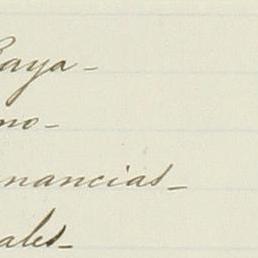 Caya-
no-
nancias-
ales-